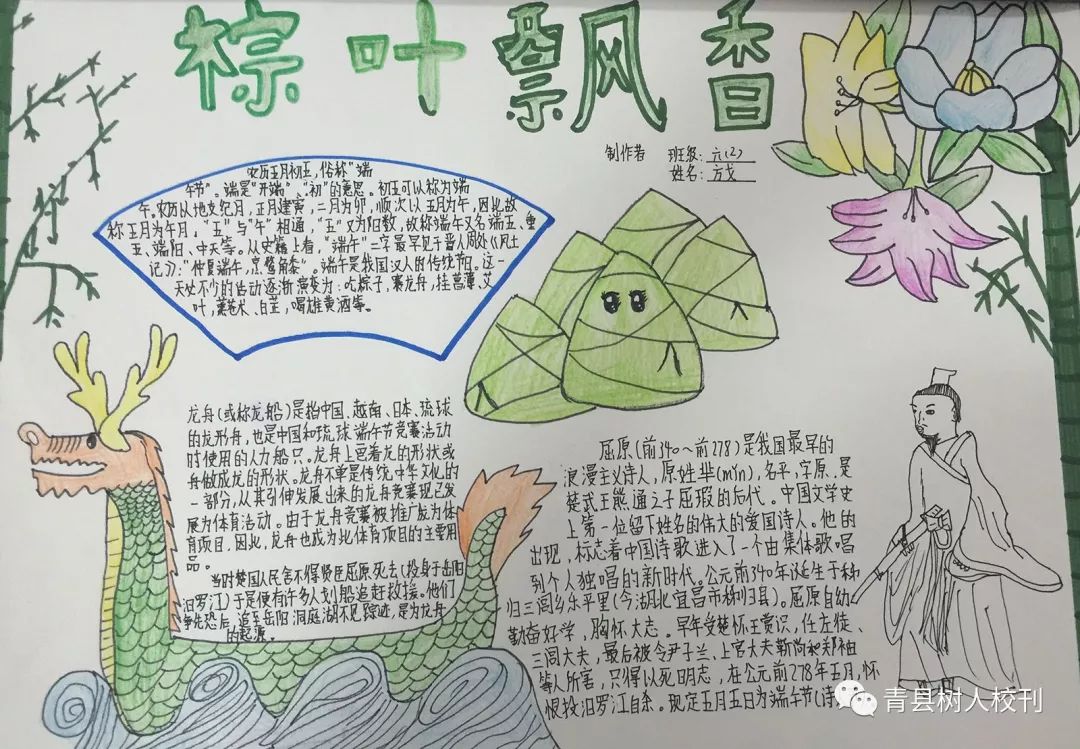 棕叶飘香
制作者 班级:六(2)
姓名:方戈
农历五月初五,俗称“端
午节”。端是“开端”、“初”的意思。初五可以称为端
午。农历以地支纪月,正月建寅,二月为卯,顺次以五月为午,因此故
称五月为午月,“五”与“午”相通,“五”又为阳数,故称端午又名端五、重
五、端阳、中天等。从史籍上看,“端午”二字最早见于晋人周处《风土
记》:“仲夏端午,烹鹜角黍”。端午是我国汉人的传统节阳。这一
天处不少的活动逐渐演变为:吃粽子,赛龙舟,挂菖蒲、艾
叶,薰苍术、白芷,喝雄黄酒等。
龙舟(或称龙船)是指中国、越南、日本、琉球
的龙形舟,也是中国和琉球端午节竞赛活动
时使用的人力船只。龙舟上画着龙的形状或
舟做成龙的形状。龙舟不单是传统中华文化的
一部分,从其引伸发展出来的龙舟竞赛现已发
展为体育活动。由于龙舟竞赛被推广成为体
育项目,因此,龙舟也成为此体育项目的主要用
品。
当时楚国人民舍不得贤臣屈原死去(投身于岳阳
汨罗江)于是便有许多人划船追赶救援。他们
争先恐后,追至岳阳洞庭湖不见踪迹,是为龙舟
的起源。
屈原(前340~前278)是我国最早的
浪漫主义诗人,原姓芈(mǐn),名平,字原,是
楚武王熊通之子屈瑕的后代。中国文学史
上第一位留下姓名的伟大的爱国诗人。他的
出现,标志着中国诗歌进入了一个由集体歌唱
到个人独唱的新时代。公元前340年诞生于秭
归三闾乡乐平里(今湖北宜昌市秭归县)。屈原自幼
勤奋好学,胸怀大志。早年受楚怀王赏识,任左徒、
三闾大夫,最后被令尹子兰、上官大夫靳尚和郑袖
等人所害,只得以死明志,在公元前278年五月怀
恨投汨罗江自杀。现定五月五日为端午节(诗
青县树人校刊